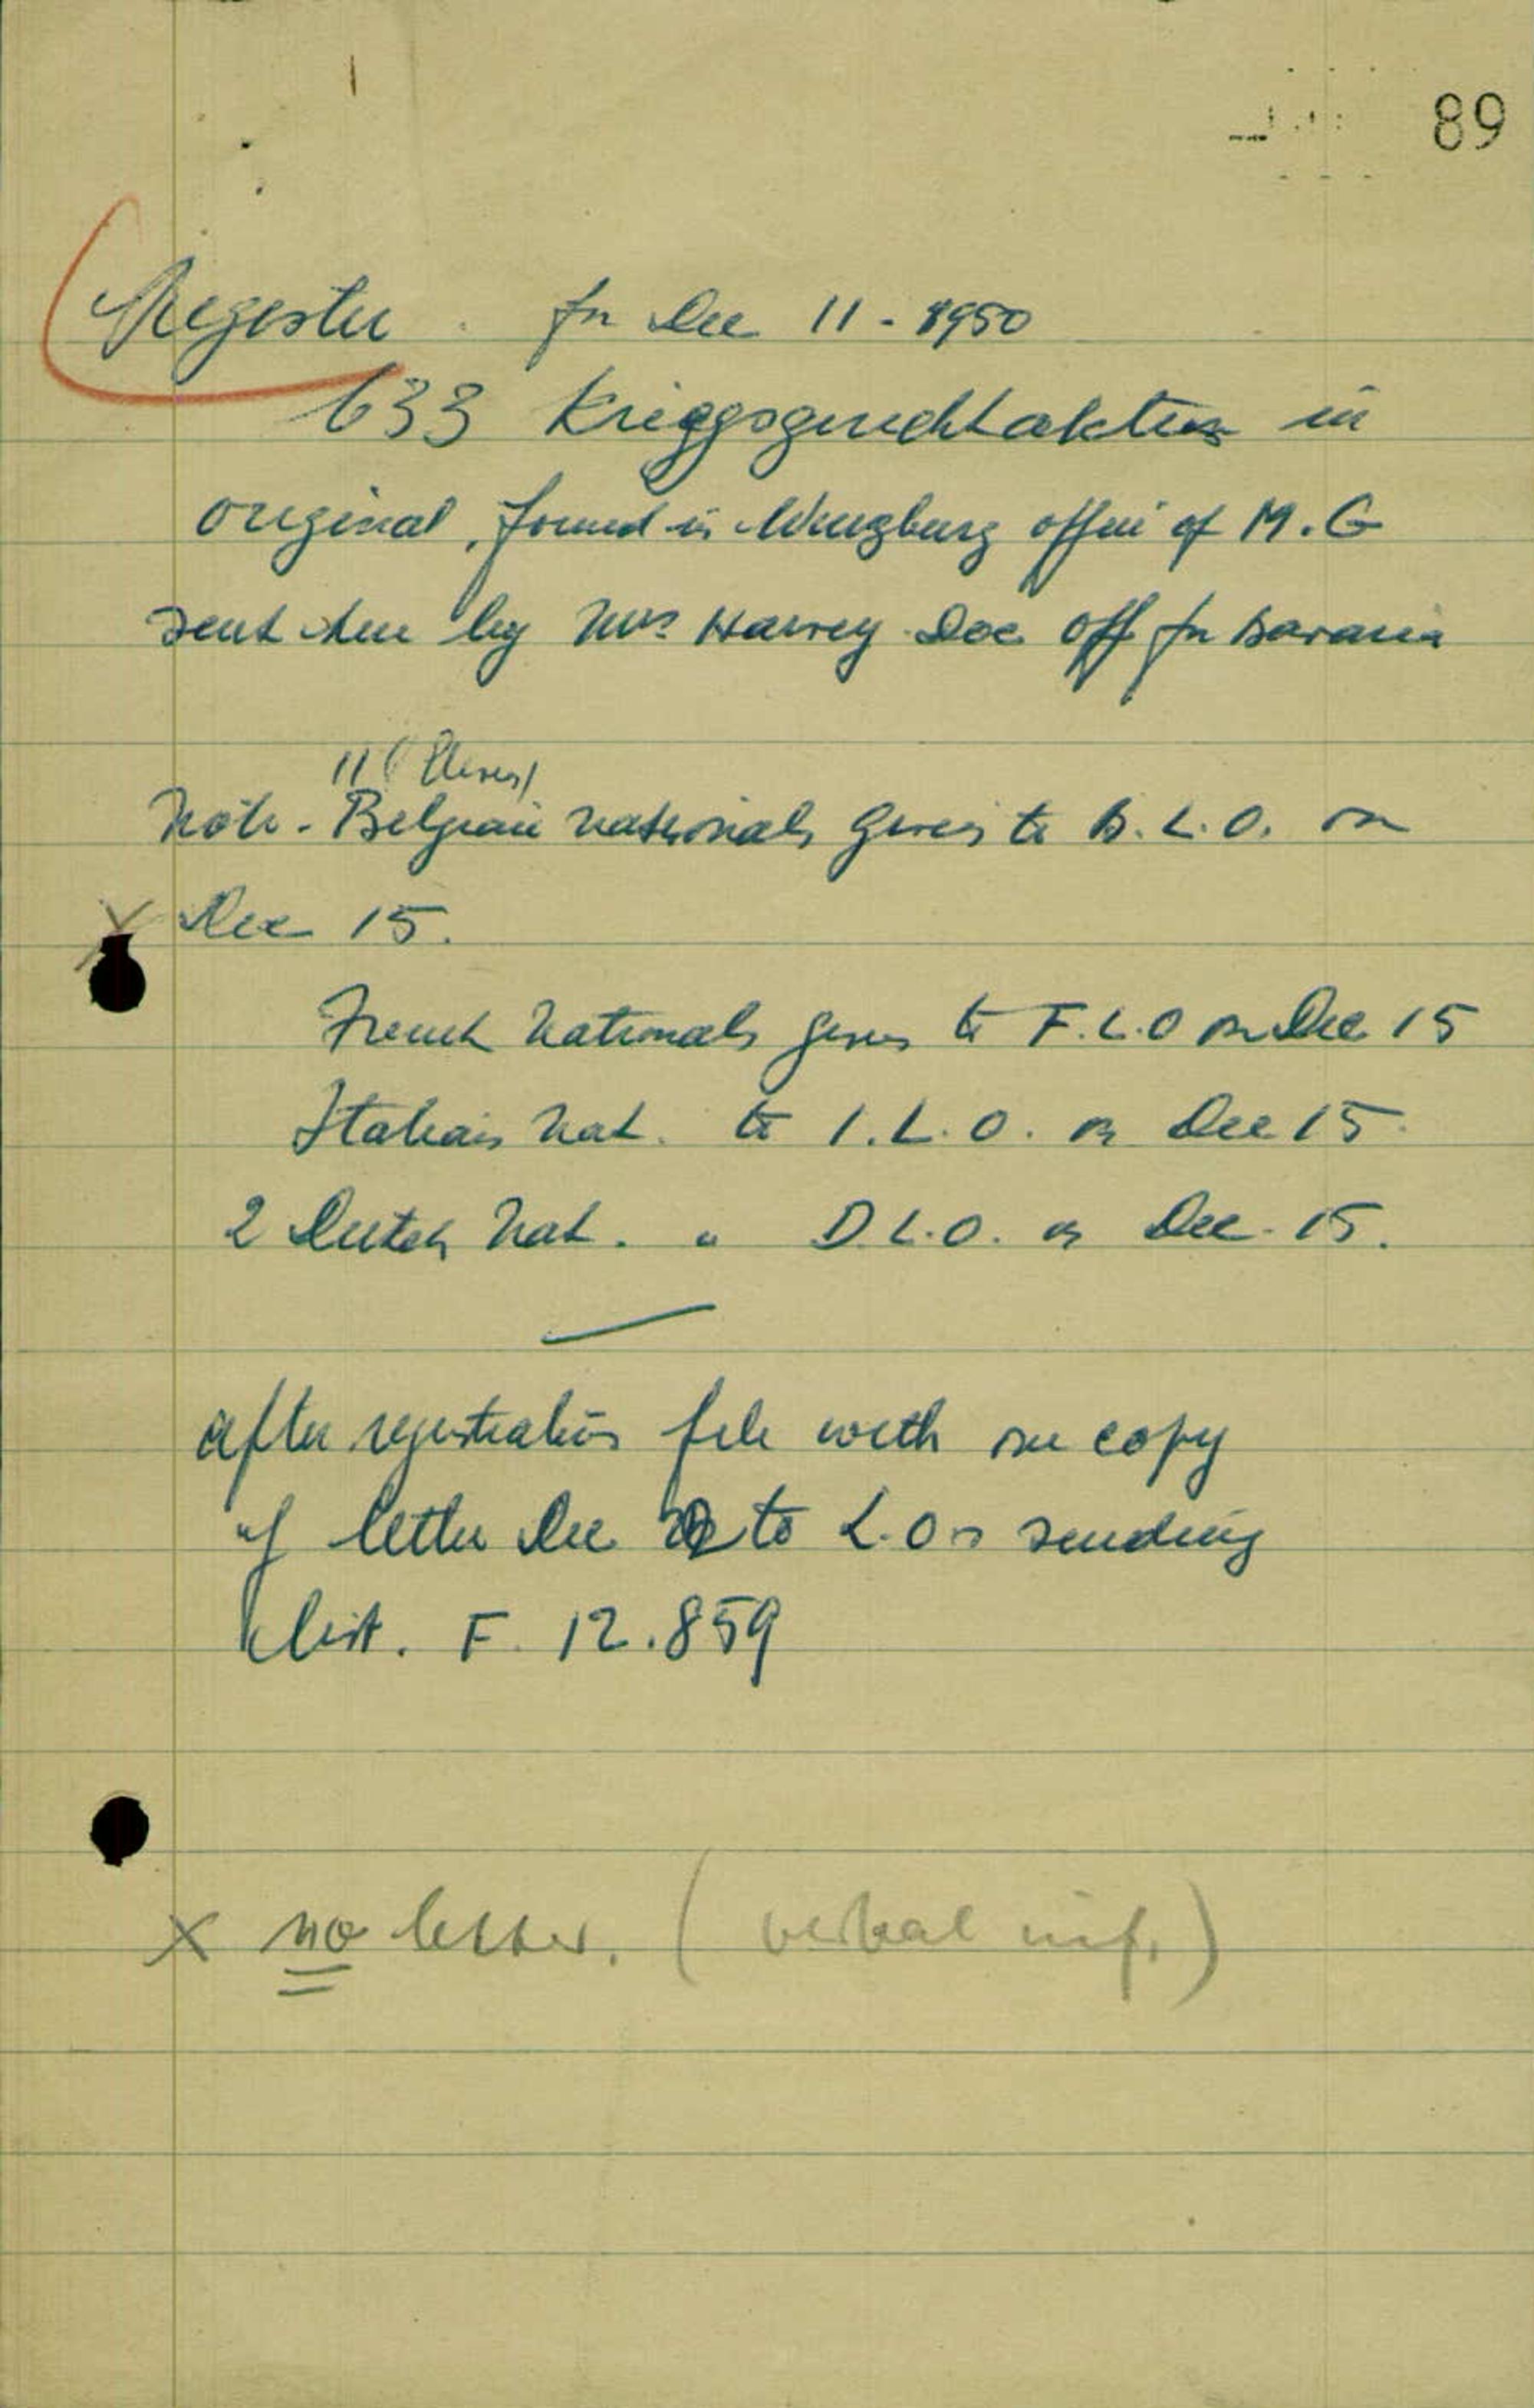 89
Register. for Dec 11 - 1950
633 Kriegsgerichtakten in
original, found in Wurzburg office of M.G
sent here by Mrs Harvey Doc Off for Bavaria
11 (Eleven)
Note - Belgian nationals given to B.L.O. on
x Dec 15.
French Nationals given to F.L.O on Dec 15
Italian Nat. to I.L.O. on Dec 15.
2 Dutch Nat. " D.L.O. on Dec. 15.
after registration file with one copy
of letter Dec to L.Os sending
list. F. 12.859
x no letter. (verbal inf.)